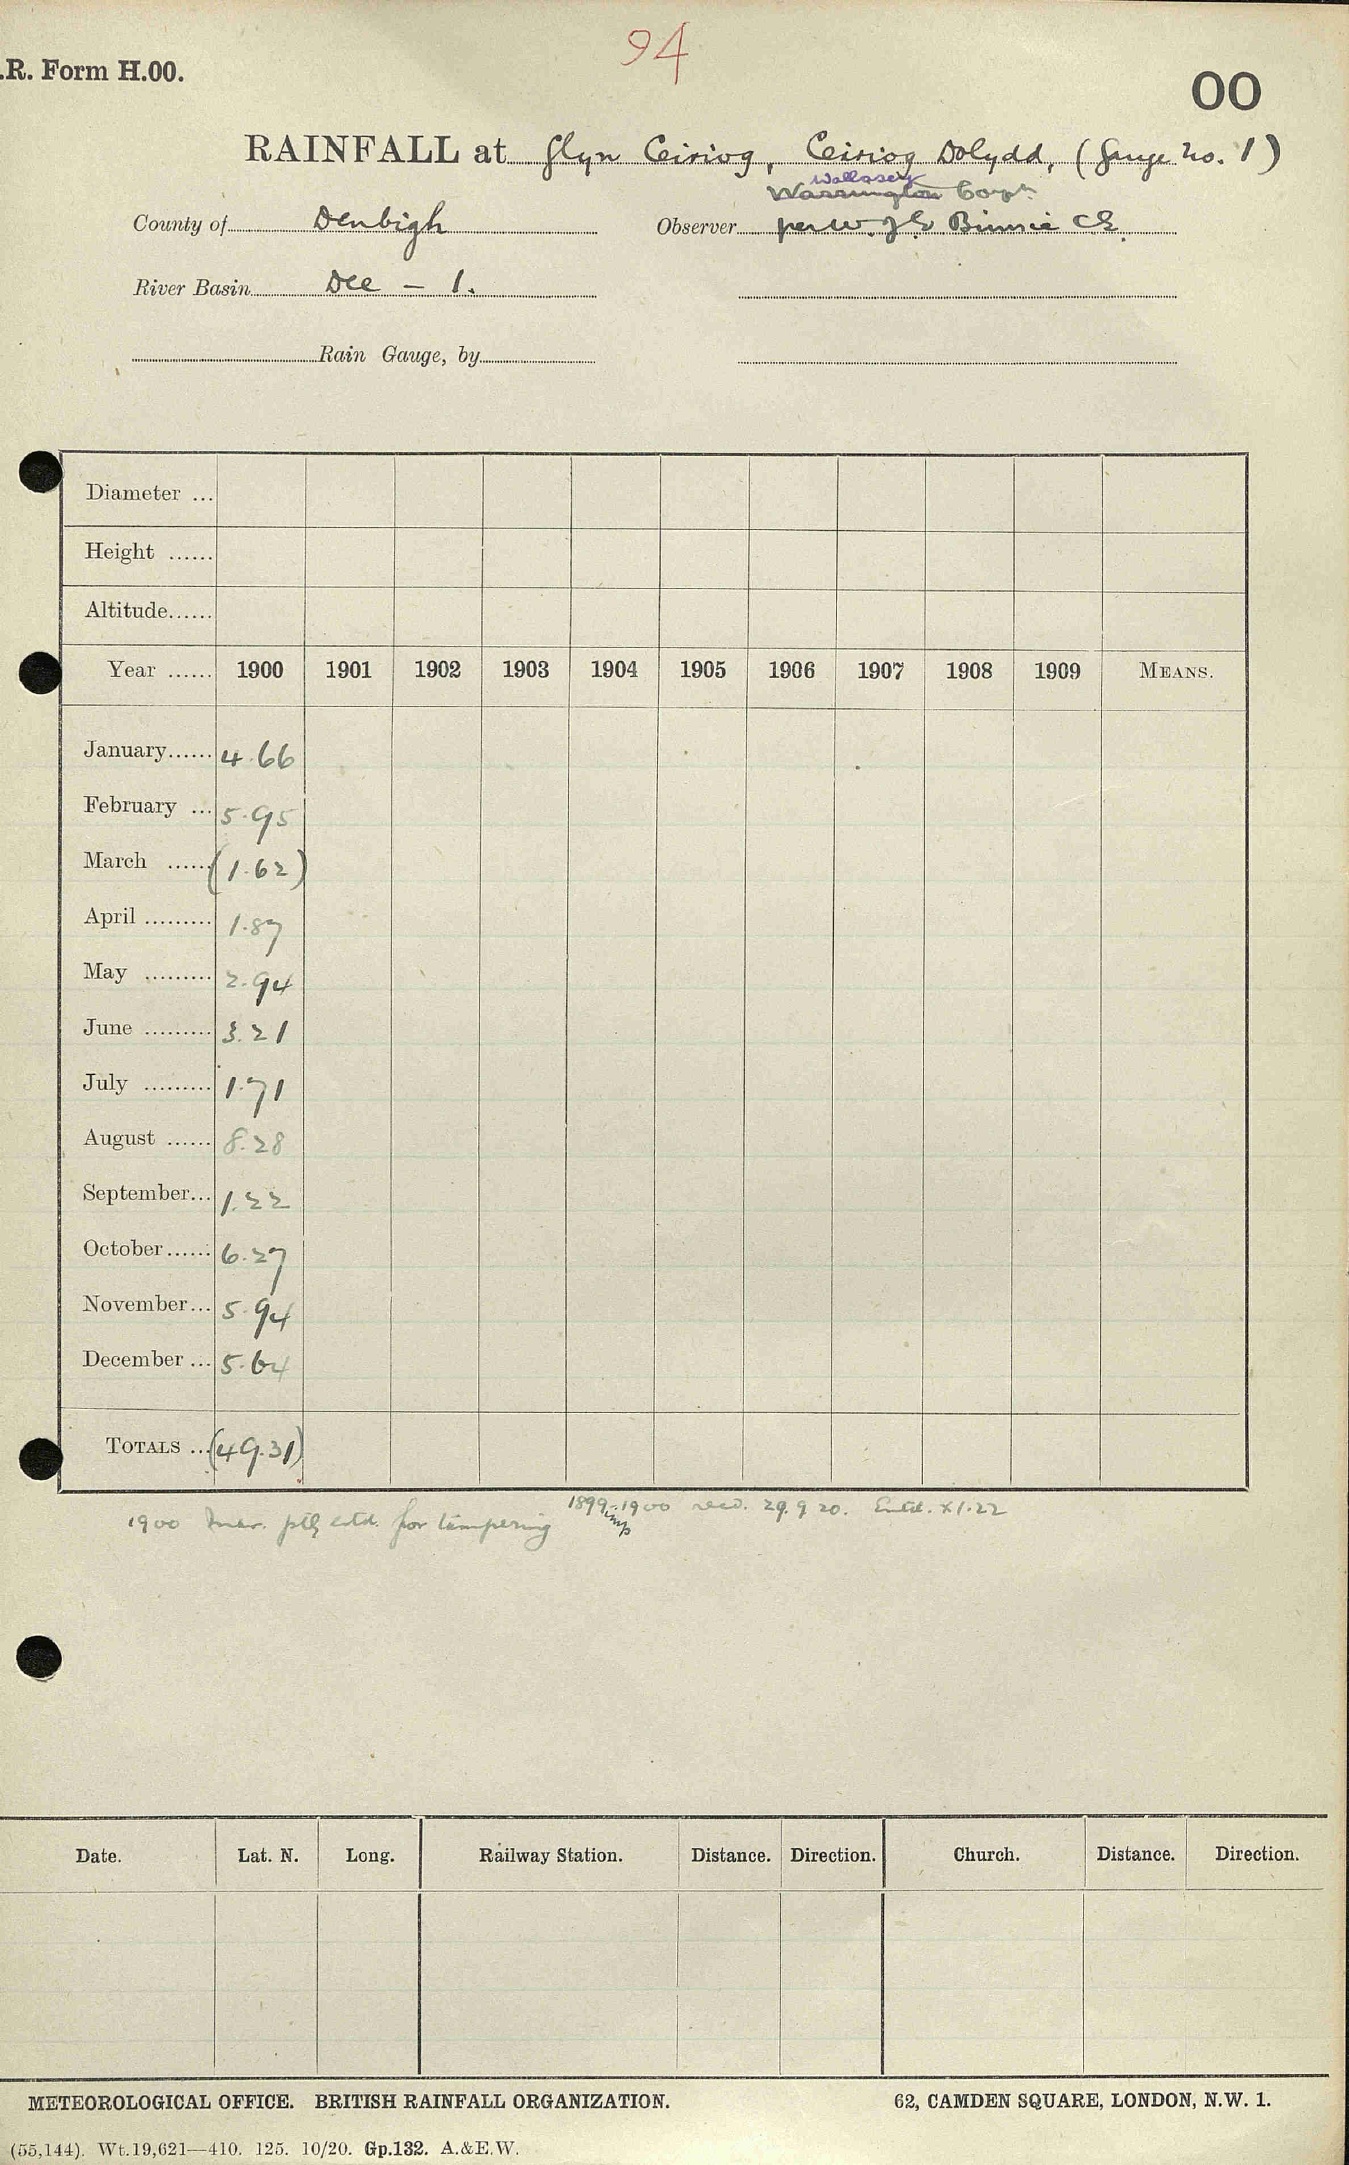 94
.R. Form H.00.
00
RAINFALL at Glyn Ceiriog, Ceiriog Dolydd, (Gauge No. 1)
Wallasey
Warrington Corpn.
County of Denbigh Observer per W. J. E. Binnie C.E.
River Basin Dee - 1.
Rain Gauge, by
Diameter ...
Height ......
Altitude......
Year ...... 1900 1901 1902 1903 1904 1905 1906 1907 1908 1909 MEANS.
January...... 4.66
February ... 5.95
March ...... (1.62)
April ......... 1.87
May ......... 2.94
June ......... 3.21
July ......... 1.71
August ...... 8.28
September... 1.22
October...... 6.27
November... 5.94
December ... 5.64
TOTALS ... (49.31)
1899-1900 recd. 29.9.20. Entd. ×1.22
1900 Mar. ptly estd. for tampering
Date. Lat. N. Long. Railway Station. Distance. Direction. Church. Distance. Direction.
METEOROLOGICAL OFFICE. BRITISH RAINFALL ORGANIZATION. 62, CAMDEN SQUARE, LONDON, N.W. 1.
(55,144). Wt.19,621—410. 125. 10/20. Gp.132. A.&E.W.